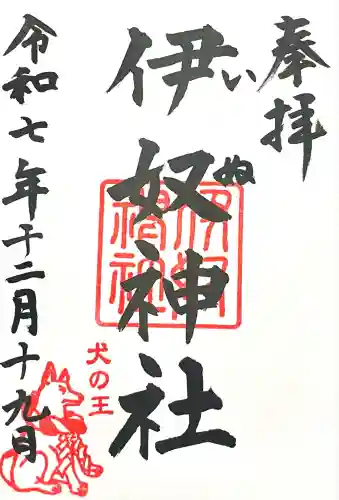 奉拝
伊奴神社
いぬ
伊奴神社
犬の王
令和七年十二月十九日